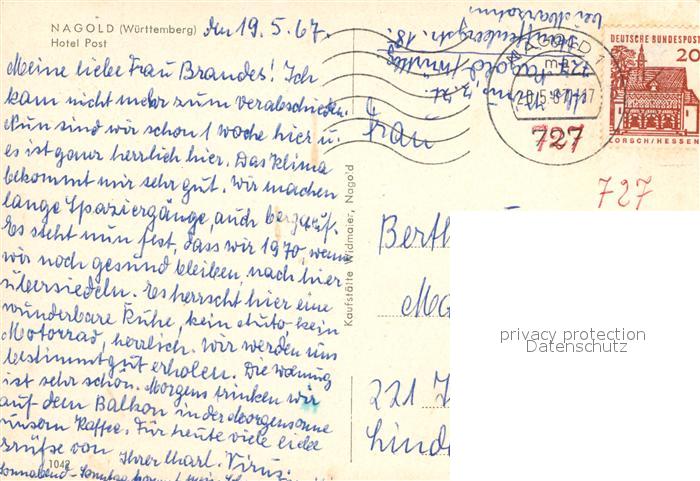 NAGOLD (Württemberg)
Hotel Post
den 19.5.67.
Meine liebe Frau Brandes! Ich
kam nicht mehr zum verabschieden.
Nun sind wir schon 1 Woche hier u.
es ist ganz herrlich hier. Das Klima
bekommt mir sehr gut. Wir machen
lange Spaziergänge, auch bergauf.
Es steht nun fest, dass wir 1970, wenn
wir noch gesund bleiben, nach hier
übersiedeln. Es herrscht hier eine
wunderbare Ruhe, kein Auto, kein
Motorrad, herrlich. Wir werden uns
bestimmt gut erholen. Die Wohnung
ist sehr schön. Morgens trinken wir
auf dem Balkon in der Morgensonne
unsern Kaffee. Für heute viele liebe
Grüße von Ihrer Charl.
Sonnabend - Sonntag
1042
Kaufstätte Widmaier, Nagold
bei
Nagold
NAGOLD 1
20.5.67-17
727
DEUTSCHE BUNDESPOST
20
LORSCH/HESSEN
727
Frau
Berth
221
Linde
privacy protection
Datenschutz